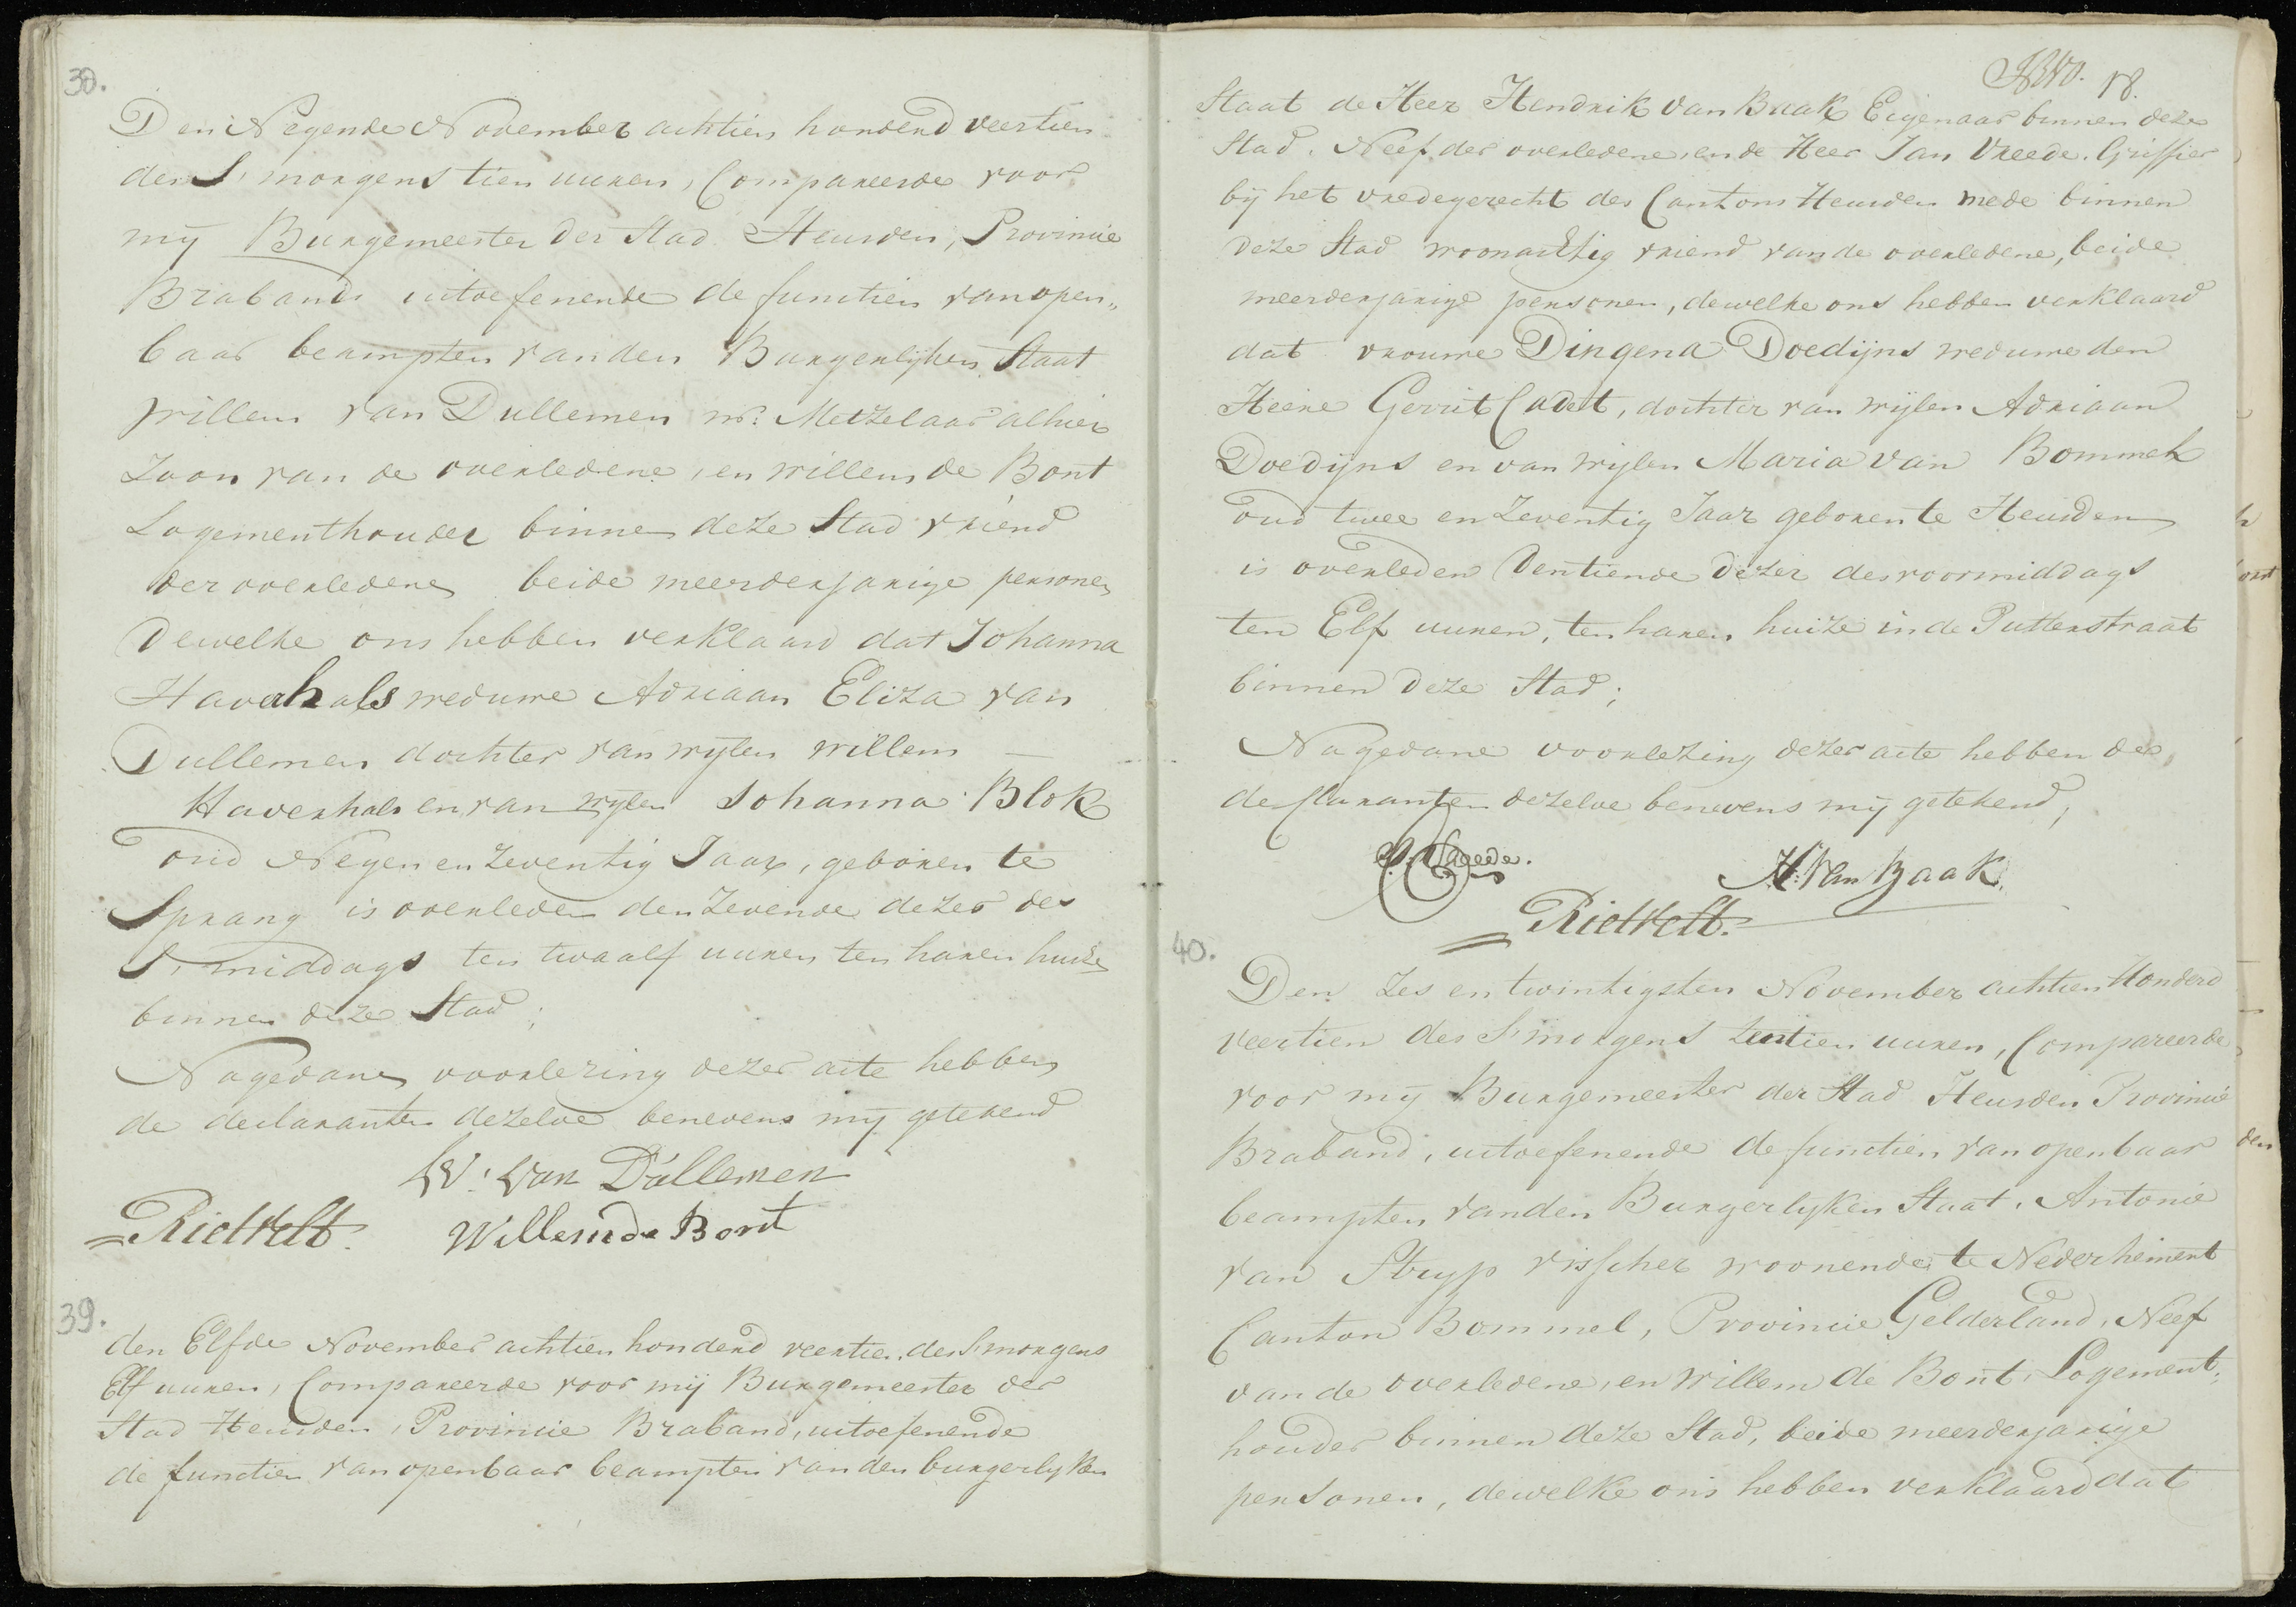 38.
Den Negende November achtien honderd veertien
des S, morgens tien uuren, Compareerde voor
mij Burgemeester der Stad Heusden, Provincie
Braband uitoefenende de functien van open„
baar beampten van den Burgerlijken Staat
Willem van Dullemen mr: Metzelaar alhier
Zoon van de overledene, en Willem de Bont
Logementhouder binnen deze Stad vriend
der overledene beide meerderjarige personen
Dewelke ons hebben verklaard dat Johanna
Haverhals weduwe Adriaan Eliza van
Dullemen dochter van wijlen Willem —
Haverhals en van wijlen Johanna Blok
oud Negen en Zeventig Jaar, geboren te
Sprang is overleden den Zevende dezer des
S, middags ten twaalf uuren ten haren huize
binnen deze Stad;
Nagedane voorlezing dezer acte hebben
de declaranten dezelve benevens mij getekend
W: van Dullemen
Rietvelt. Willem de Bont
39.
den Elfde November achtien honderd veertien des S,morgens
Elf uuren, Compareerde voor mij Burgemeester der
Stad Heusden, Provincie Braband, uitoefenende
de functien van openbaar beampten van den burgerlyken
18.
Staat de Heer Hendrik van Baak Eigenaar binnen deze
Stad. Neef der overledene, en de Heer Jan Vreede. Griffier
bij het vredegerecht des Cantons Heusden mede binnen
deze Stad woonachtig vriend van de overledene, beide
meerderjarige personen, dewelke ons hebben verklaard
dat vrouwe Dingena Doedijns weduwe den
Heere Gerrit Cadet, dochter van wijlen Adriaan
Doedijns en van wijlen Maria van Bommel
oud twee en Zeventig Jaar geboren te Heusden
is overleden Den tiende dezer des voormiddags
ten Elf uuren, ten haren huize in de Putterstraat
binnen deze Stad;
Nagedane voorlezing dezer acte hebben de
declaranten dezelve benevens mij getekend,
J. Vreede. H. Van Baak.
Rietvelt.
40.
Den Zes en twintigsten November achtien Honderd
veertien des S,morgens ten tien uuren, Compareerde
voor mij Burgemeester der Stad Heusden Provincie
Braband, uitoefenende de functien van openbaar
beampten van den Burgerlyken Staat, Antonie
van Stryp visscher woonende te Nederhemert
Canton Bommel, Provincie Gelderland, Neef
van de overledene, en Willem de Bont, Logement„
houder binnen deze Stad, beide meerderjarige
personen, dewelke ons hebben verklaard dat